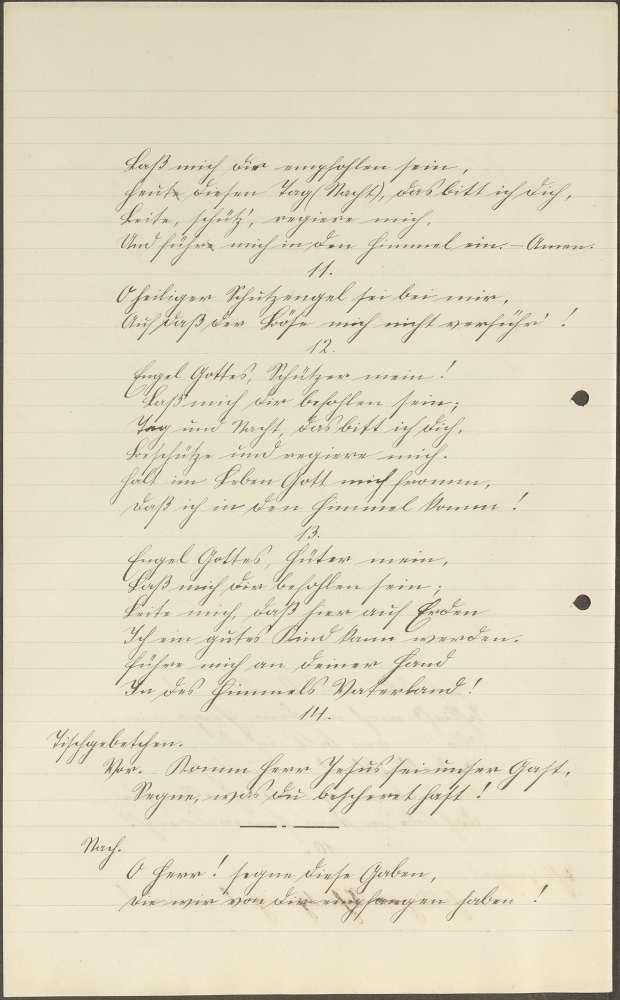 Laß mich dir empfohlen sein,
Heute diesen Tag (Nacht), das bitt ich dich,
Leite, schütz', regiere mich,
Und führe mich in den Himmel ein. – Amen.
11.
O heiliger Schutzengel sei bei mir,
Auf daß der Böse mich nicht verführ'!
12.
Engel Gottes, Schützer mein!
Laß mich dir befohlen sein;
Tag und Nacht, das bitt ich dich,
Beschütze und regiere mich.
Hält im Leben Gott mich fromm,
Daß ich in den Himmel komm!
13.
Engel Gottes, Hüter mein,
Laß mich dir befohlen sein;
Leite mich, daß hier auf Erden
Ich ein gutes Kind kann werden.
Führe mich an deiner Hand
In des Himmels Vaterland!
14.
Tischgebetchen.
Vor. Komm Herr Jesus sei unser Gast,
Segne, was du bescheret hast!
Nach.
O Herr! segne diese Gaben,
Die wir von dir empfangen haben!